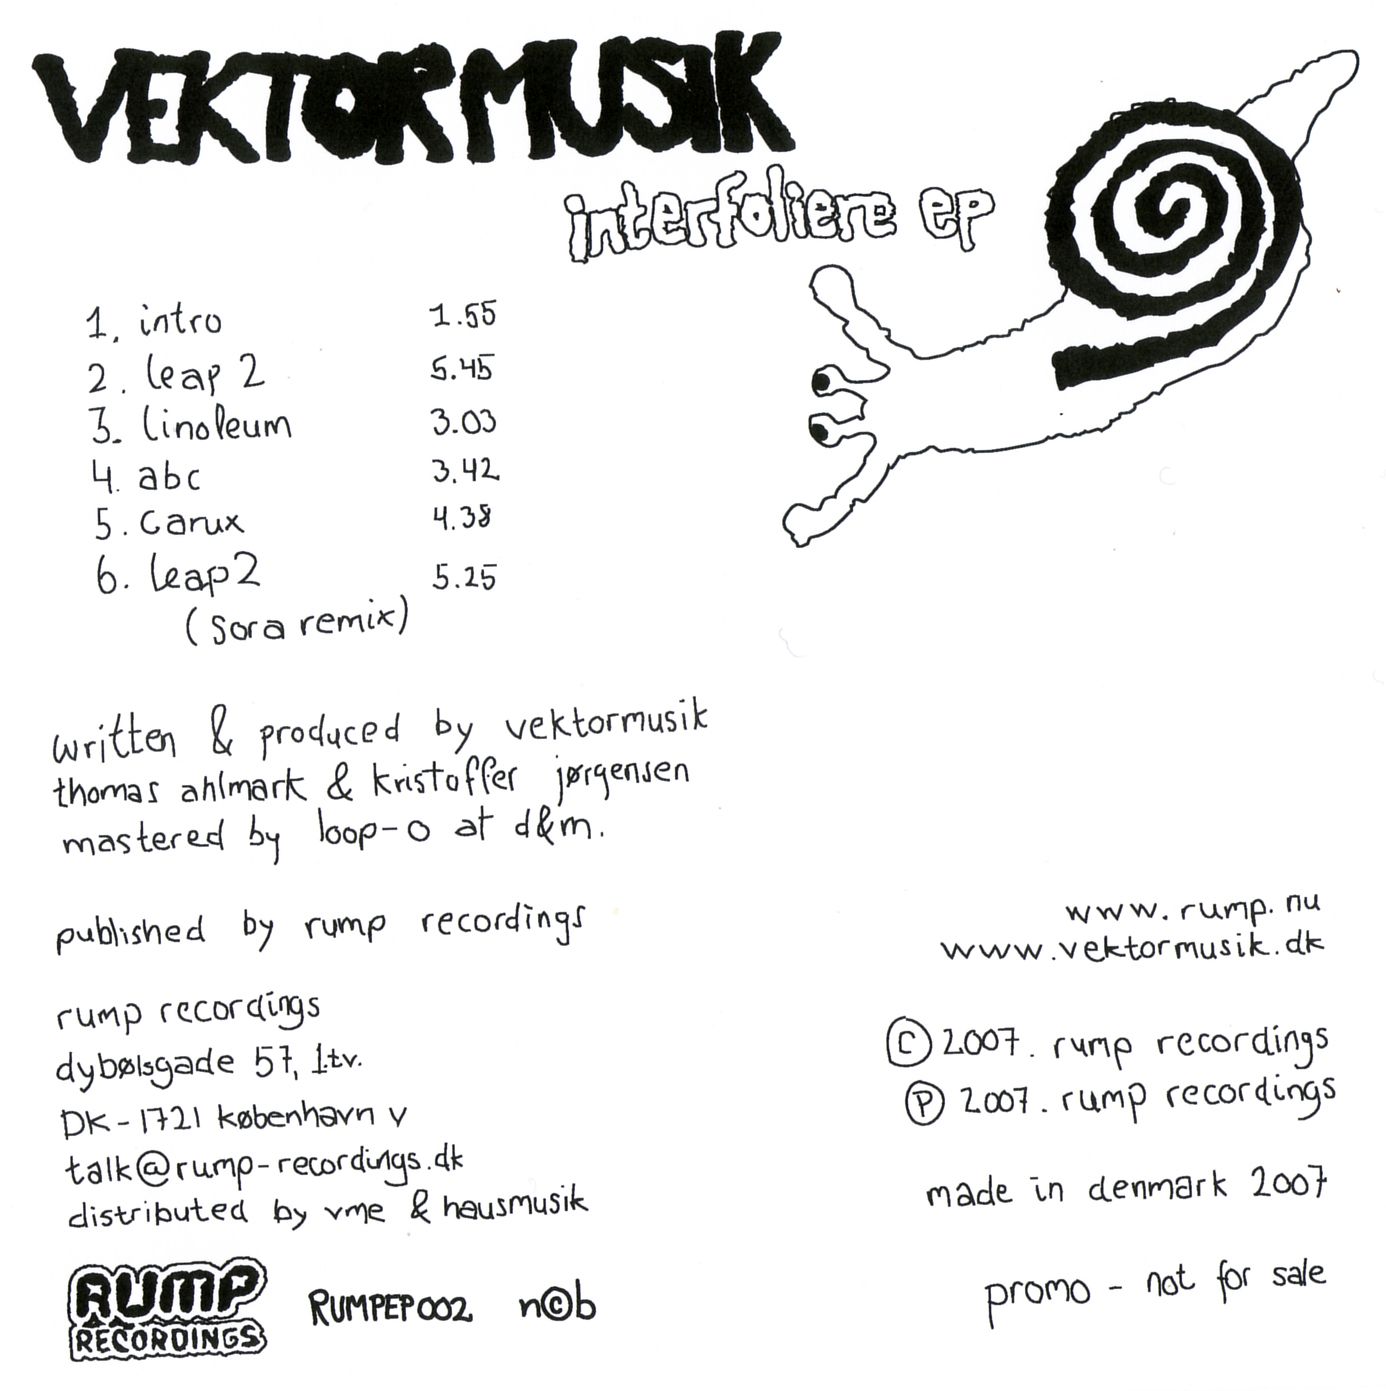 VEKTORMUSIK
interfoliere ep
1. intro 1.55
2. leap 2 5.45
3. linoleum 3.03
4. abc 3.42
5. carux 4.38
6. leap2 5.25
(sora remix)
written & produced by vektormusik
thomas ahlmark & kristoffer jørgensen
mastered by loop-o at d&m.
published by rump recordings
rump recordings
dybølsgade 57, 1.tv.
DK-1721 københavn v
talk@rump-recordings.dk
distributed by vme & hausmusik
RUMP
RECORDINGS
RUMPEP002 n©b
www.rump.nu
www.vektormusik.dk
© 2007. rump recordings
℗ 2007. rump recordings
made in denmark 2007
promo - not for sale